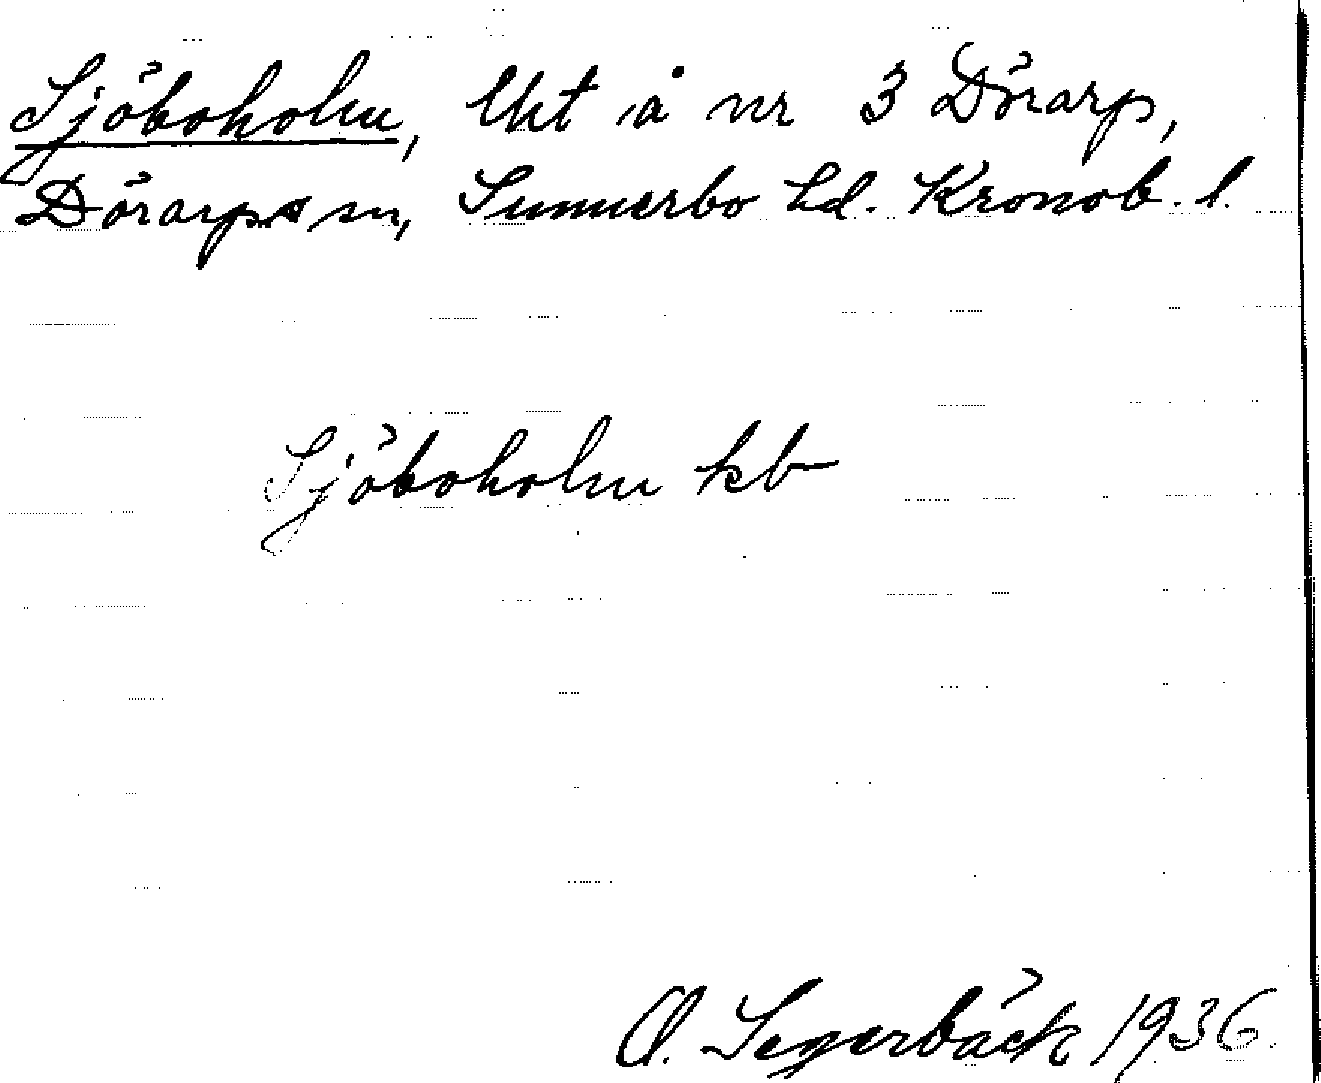 Sjöboholm, lht å nr 3 Dörarp,
Dörarps sn, Sunnerbo hd. Kronob. l.
Sjöboholm kb
O. Segerbäck 1936